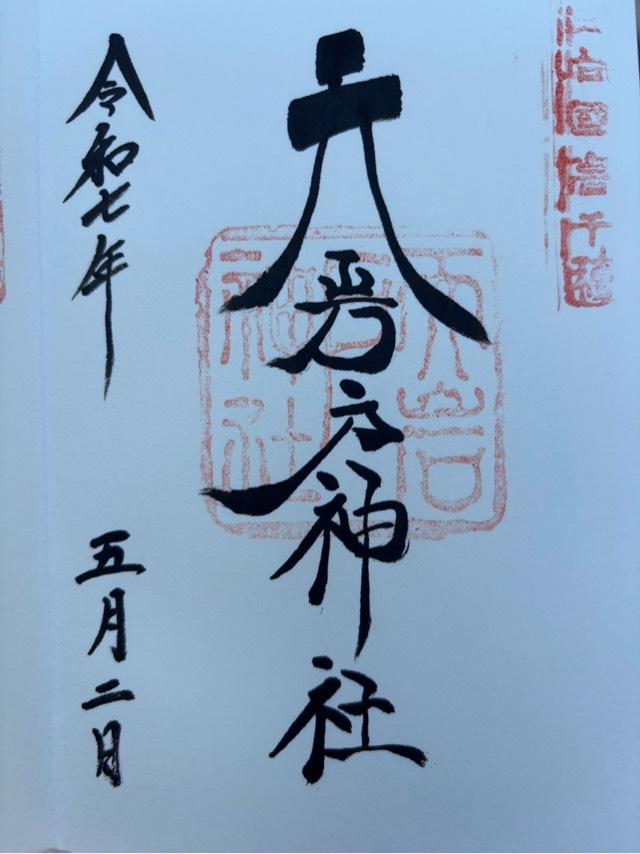 天岩戸神社
令和七年
五月二日
天岩戸神社